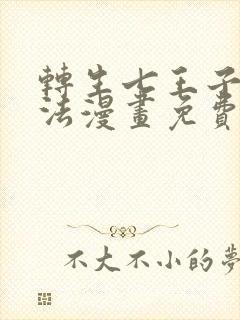 轉生七王子
法漫畫免費
不大不小的夢